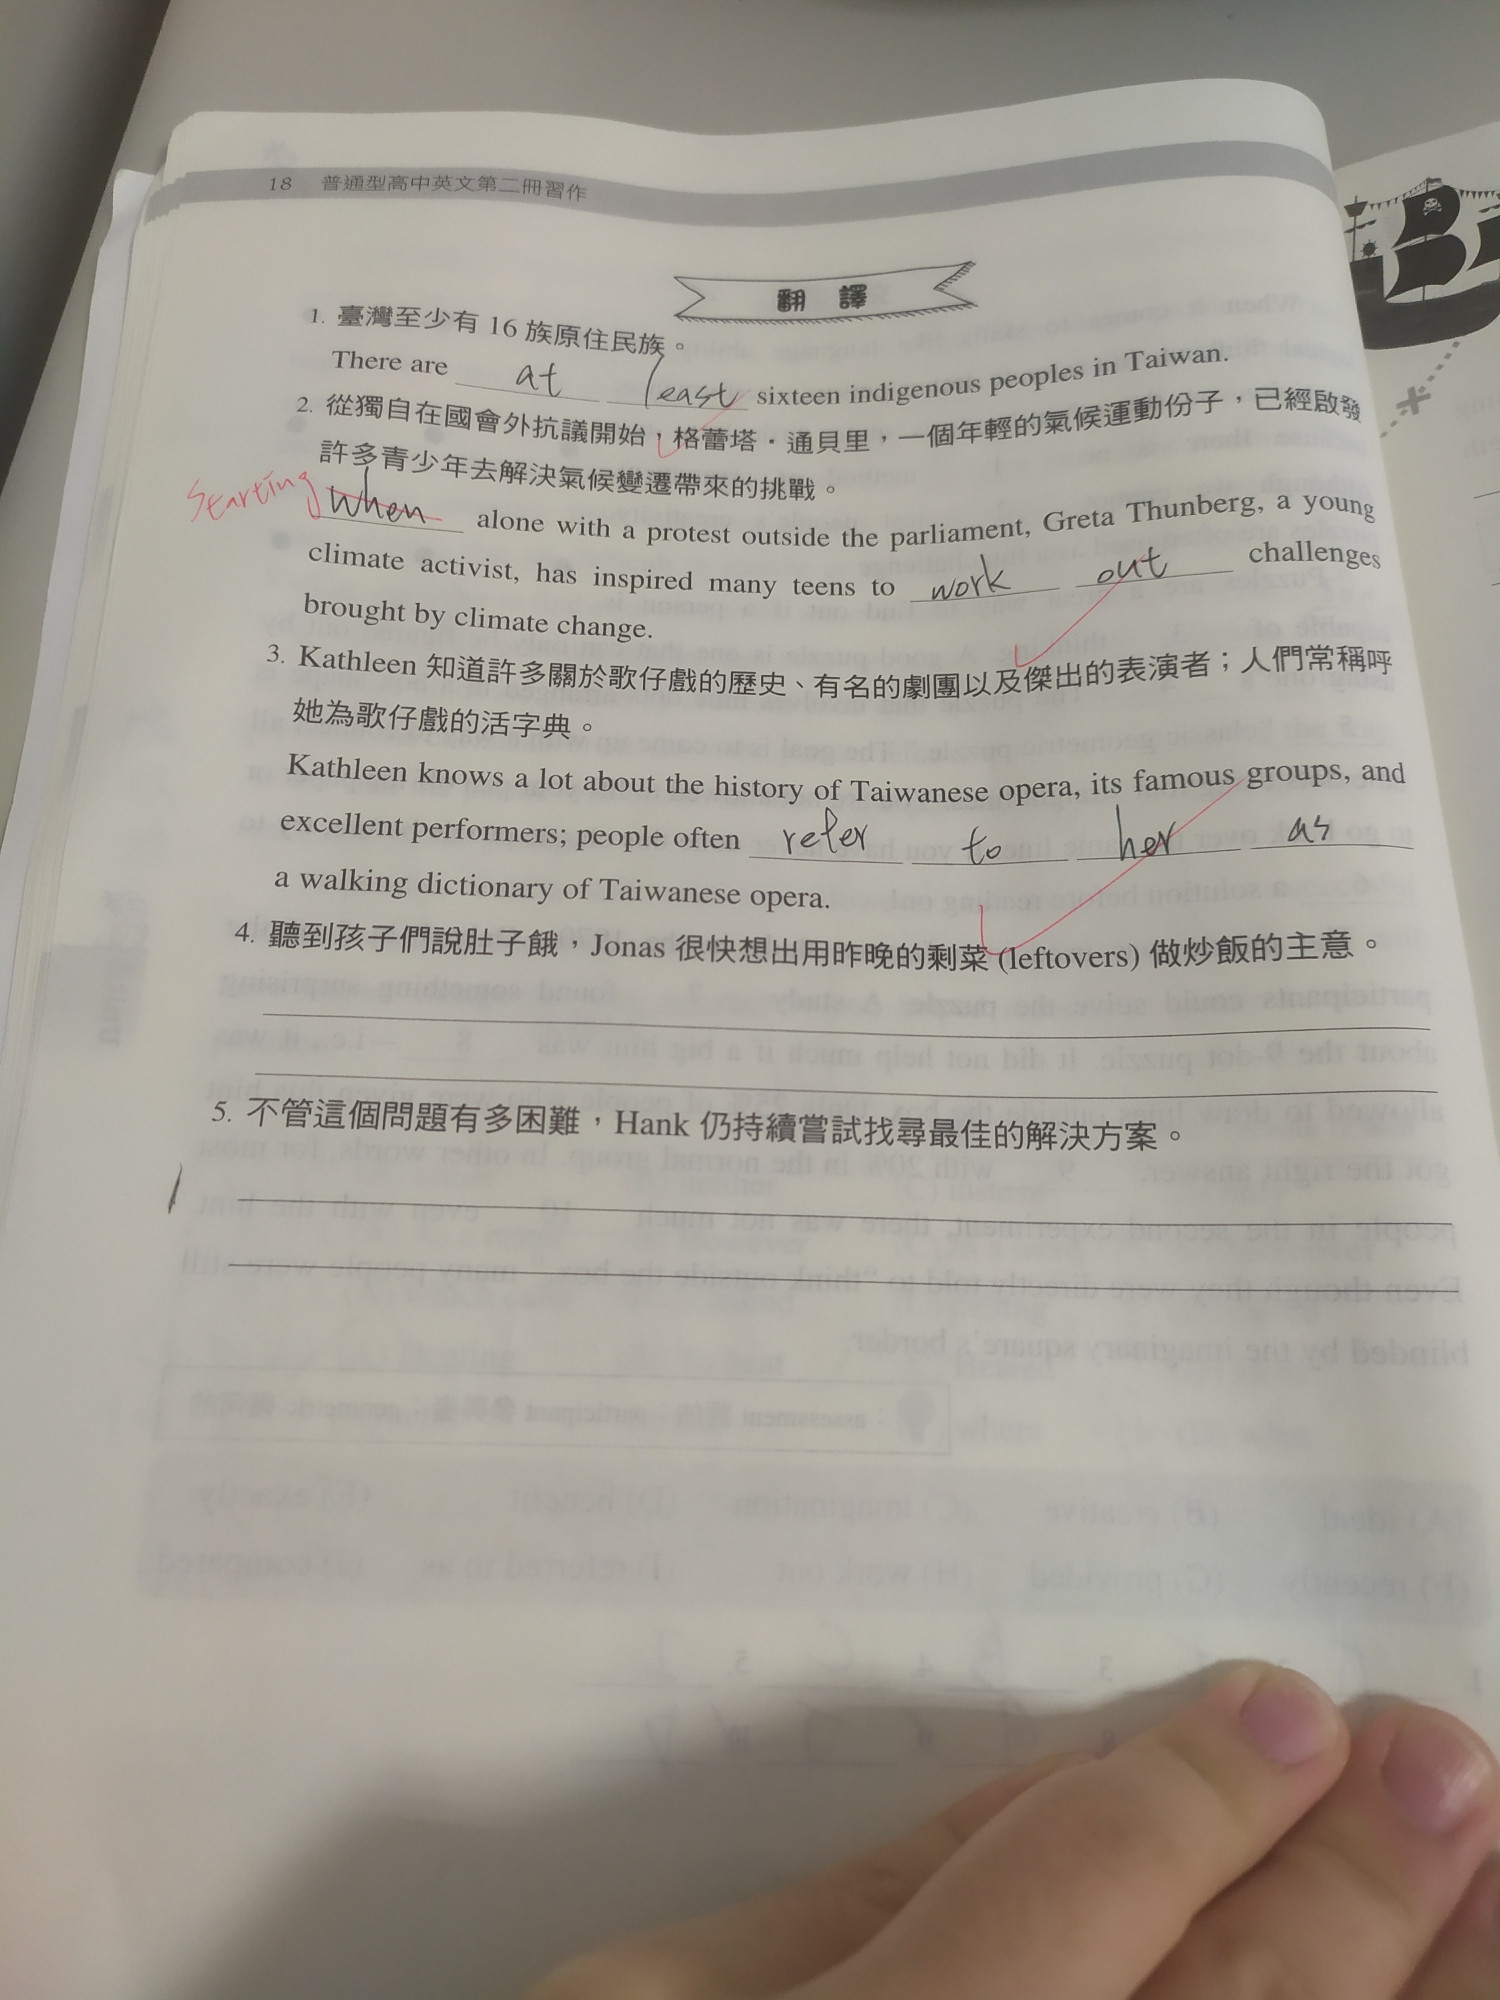 18 普通型高中英文第二冊習作
翻譯
1. 臺灣至少有 16 族原住民族。
There are at least sixteen indigenous peoples in Taiwan.
2. 從獨自在國會外抗議開始，格蕾塔・通貝里，一個年輕的氣候運動份子，已經啟發
許多青少年去解決氣候變遷帶來的挑戰。
Starting When alone with a protest outside the parliament, Greta Thunberg, a young
climate activist, has inspired many teens to work out challenges
brought by climate change.
3. Kathleen 知道許多關於歌仔戲的歷史、有名的劇團以及傑出的表演者；人們常稱呼
她為歌仔戲的活字典。
Kathleen knows a lot about the history of Taiwanese opera, its famous groups, and
excellent performers; people often refer to her as
a walking dictionary of Taiwanese opera.
4. 聽到孩子們說肚子餓，Jonas 很快想出用昨晚的剩菜 (leftovers) 做炒飯的主意。
5. 不管這個問題有多困難，Hank 仍持續嘗試找尋最佳的解決方案。